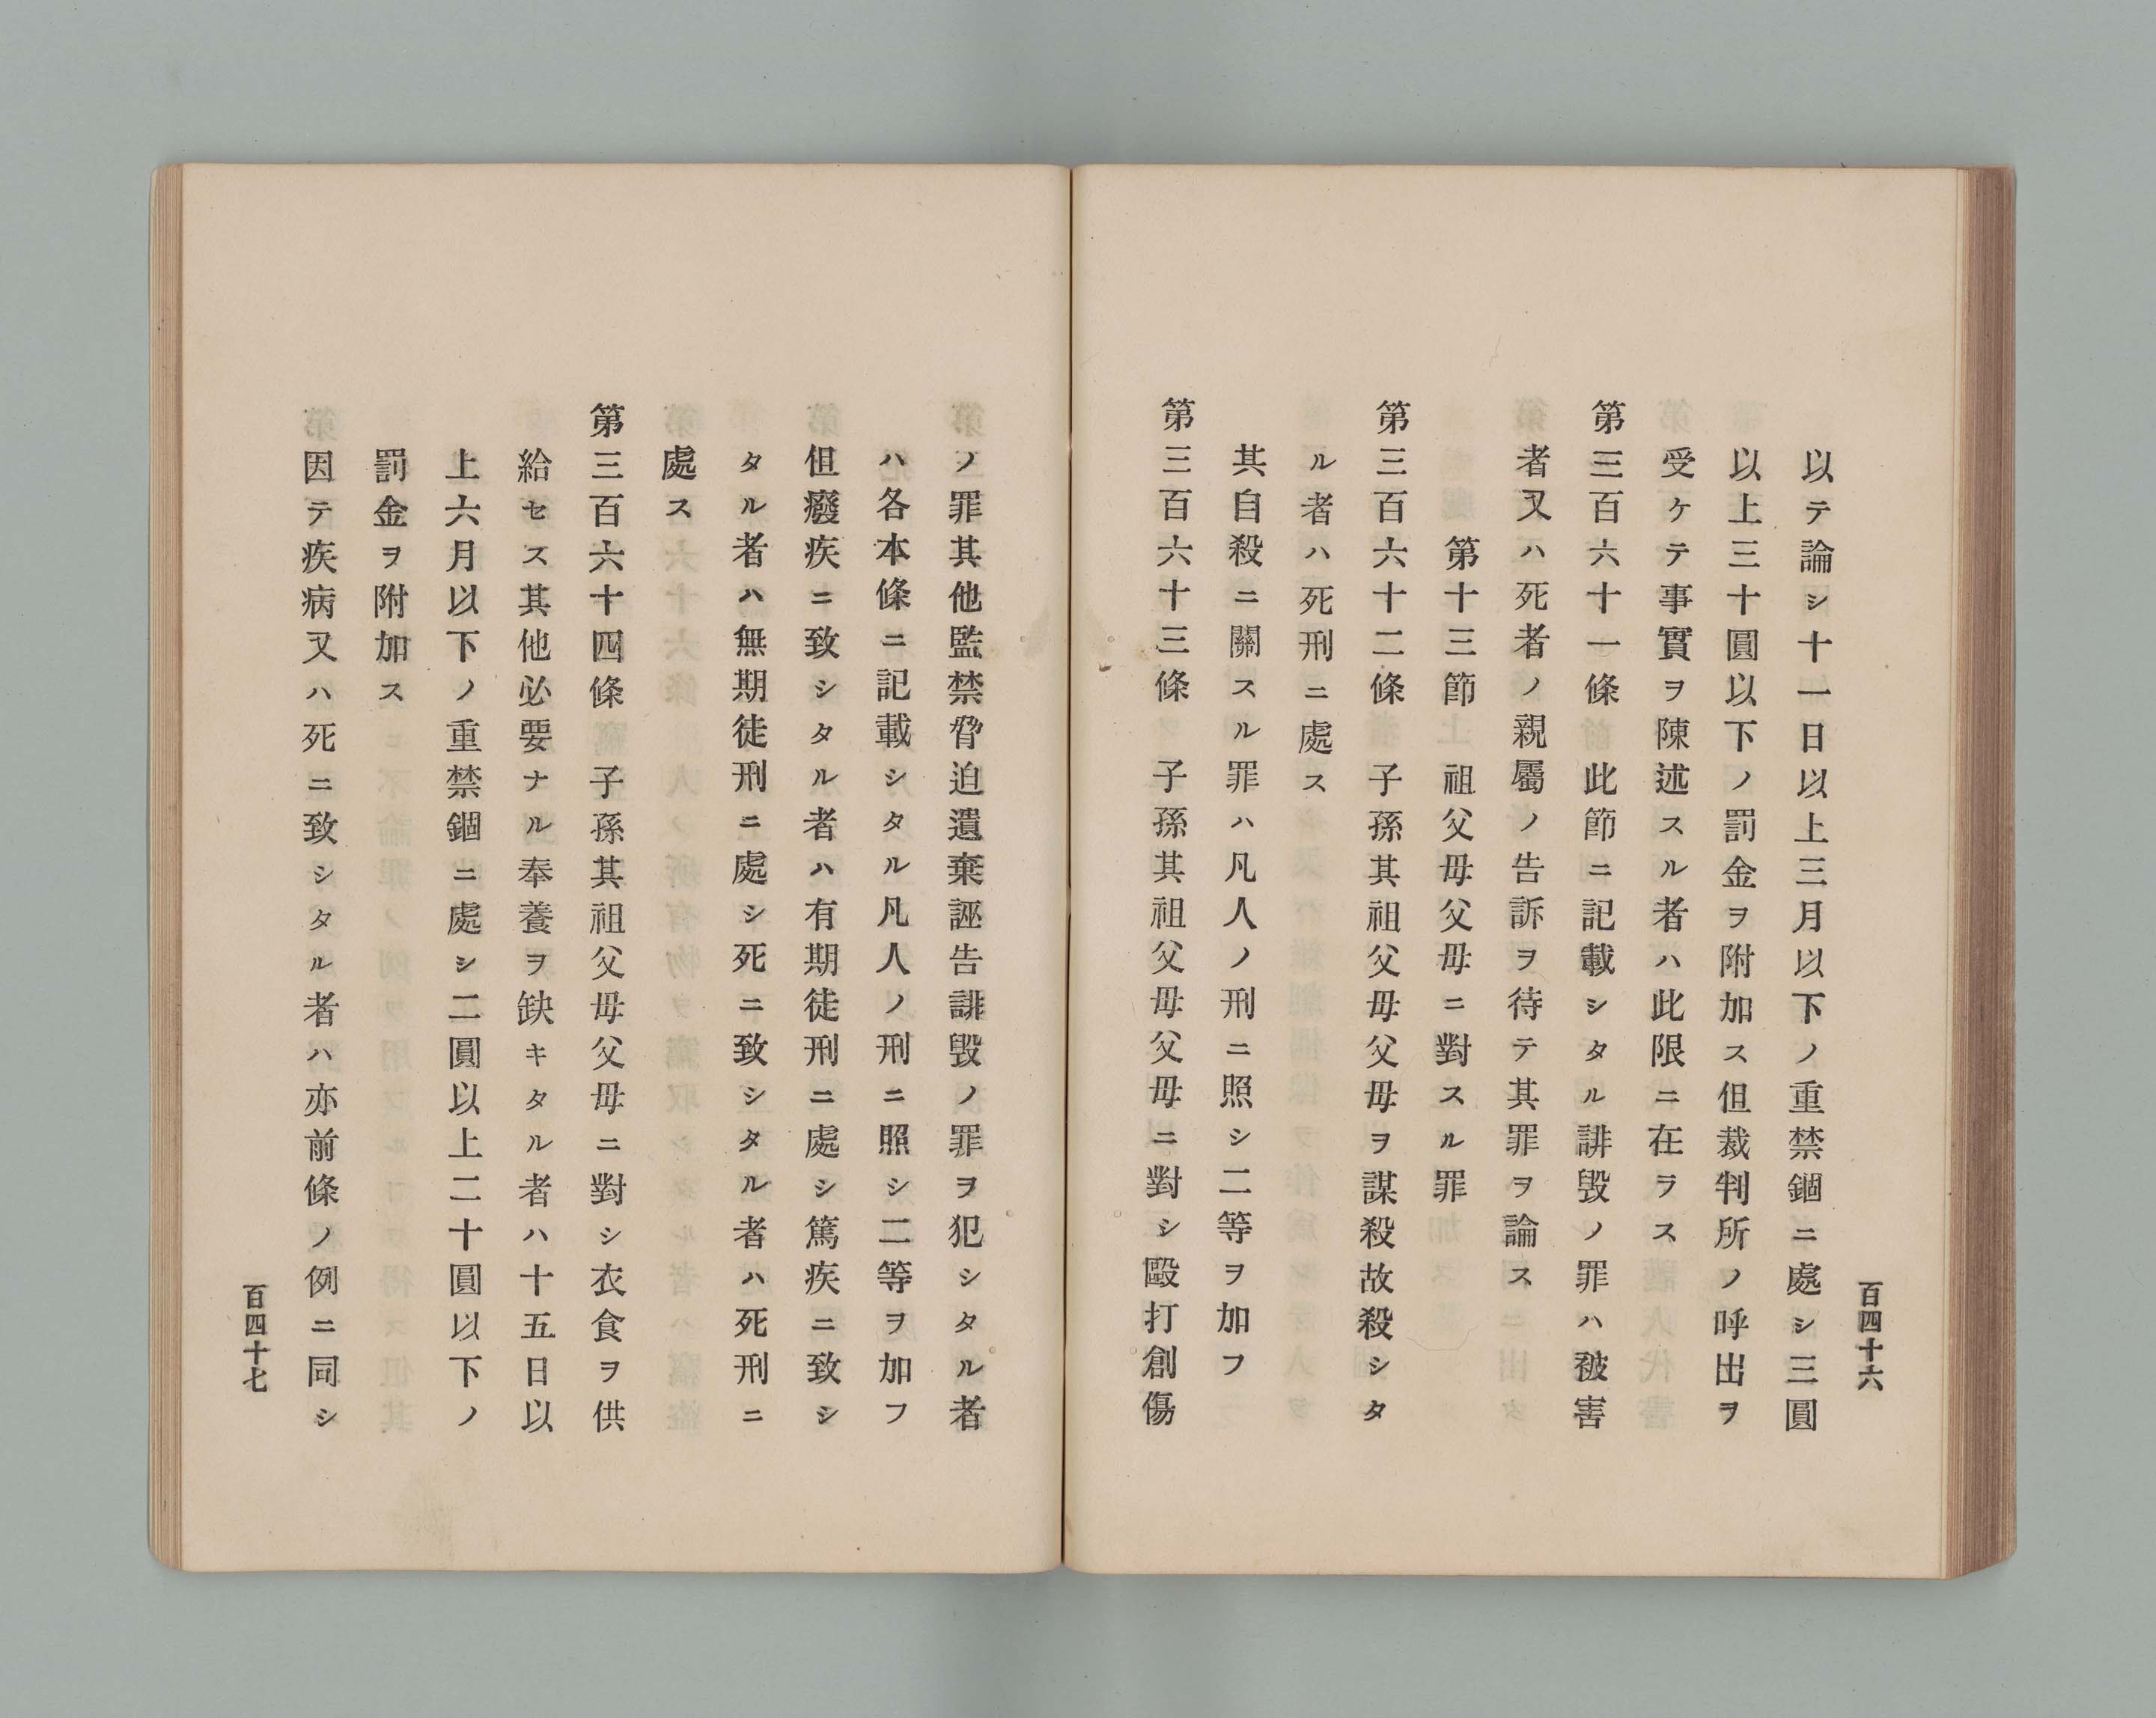 百四十六
以テ論シ十一日以上三月以下ノ重禁錮ニ處シ三圓
以上三十圓以下ノ罰金ヲ附加ス但裁判所ノ呼出ヲ
受ケテ事實ヲ陳述スル者ハ此限ニ在ラス
第三百六十一條　此節ニ記載シタル誹毀ノ罪ハ被害
者又ハ死者ノ親屬ノ告訴ヲ待テ其罪ヲ論ス
第十三節　祖父母父母ニ對スル罪
第三百六十二條　子孫其祖父母父母ヲ謀殺故殺シタ
ル者ハ死刑ニ處ス
其自殺ニ關スル罪ハ凡人ノ刑ニ照シ二等ヲ加フ
第三百六十三條　子孫其祖父母父母ニ對シ毆打創傷
ノ罪其他監禁脅迫遺棄誣告誹毀ノ罪ヲ犯シタル者
ハ各本條ニ記載シタル凡人ノ刑ニ照シ二等ヲ加フ
但癈疾ニ致シタル者ハ有期徒刑ニ處シ篤疾ニ致シ
タル者ハ無期徒刑ニ處シ死ニ致シタル者ハ死刑ニ
處ス
第三百六十四條　子孫其祖父母父母ニ對シ衣食ヲ供
給セス其他必要ナル奉養ヲ缺キタル者ハ十五日以
上六月以下ノ重禁錮ニ處シ二圓以上二十圓以下ノ
罰金ヲ附加ス
因テ疾病又ハ死ニ致シタル者ハ亦前條ノ例ニ同シ
百四十七